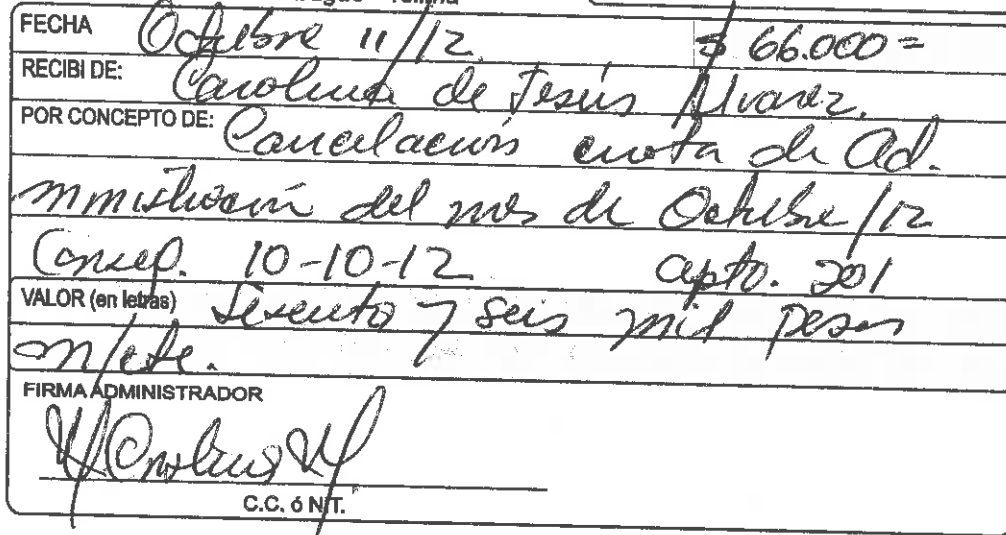 FECHA Octubre 11/12 $ 66.000=
RECIBI DE: Carolina de Jesús Alvarez.
POR CONCEPTO DE: Cancelación cuota de Ad.
ministración del mes de Octubre/12
Consep. 10-10-12 apto. 201
VALOR (en letras) Sesenta y seis mil pesos
m/cte.
FIRMA ADMINISTRADOR
C.C. ó NIT.